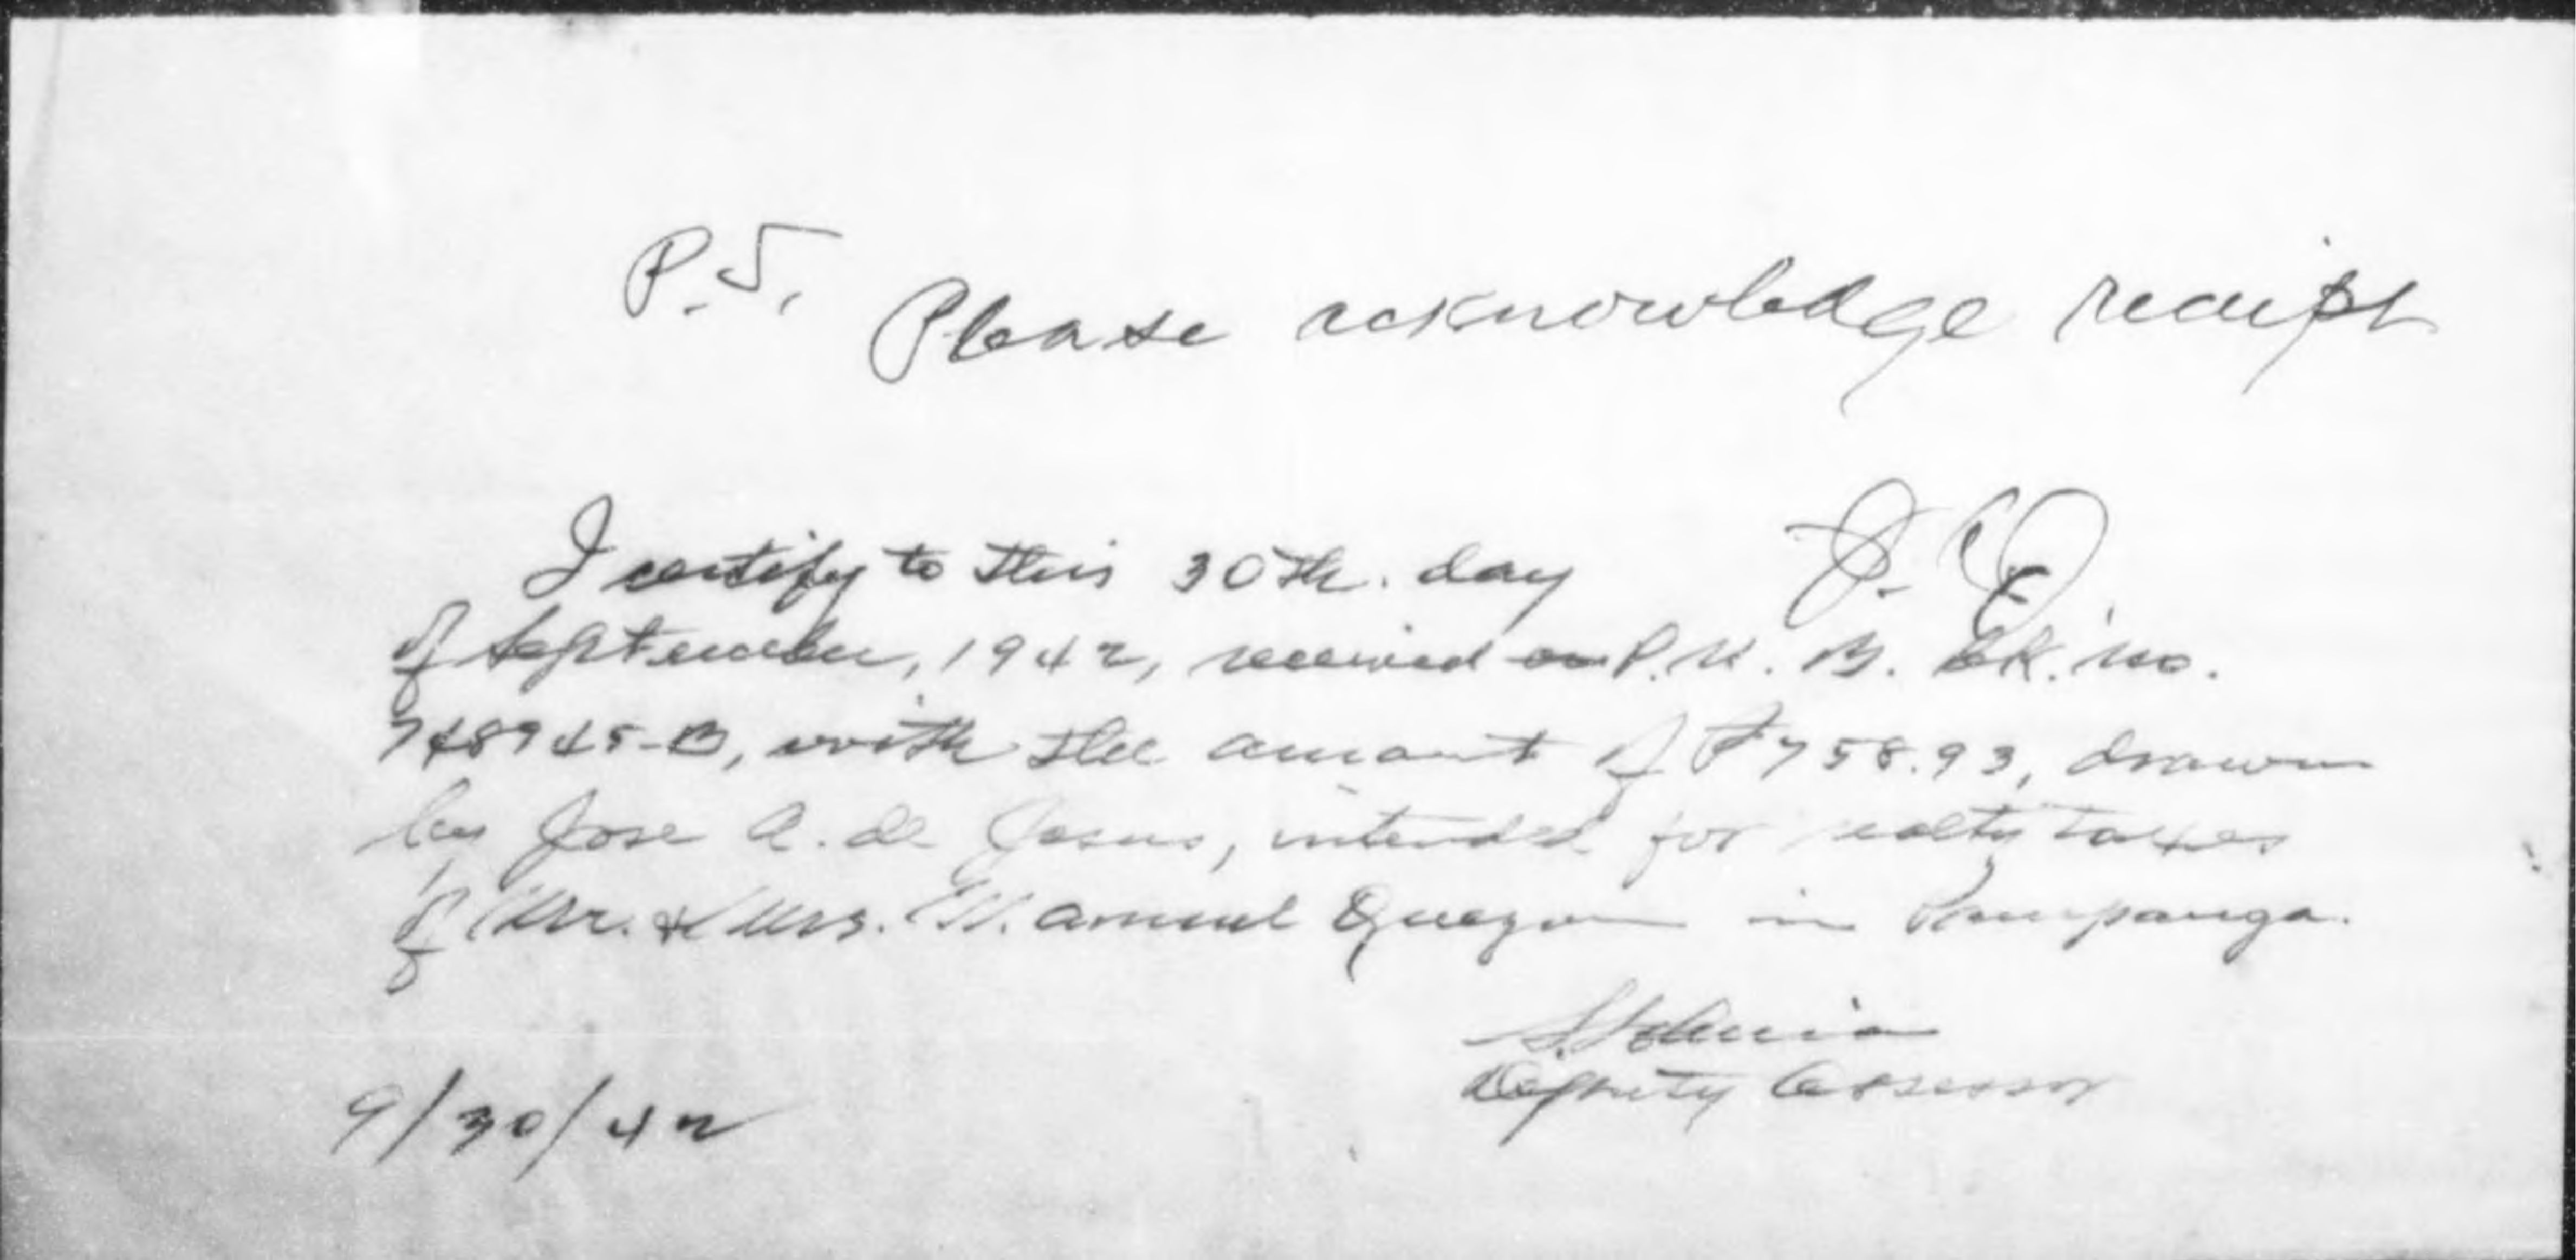 P.S.
Please acknowledge receipt
I certify to this 30th. day
of September, 1942, received P. N. B. ck. no.
748945-B, with the amount of ₱758.93, drawn
by Jose A. de Jesus, intended for realty taxes
of Mr. & Mrs. Manuel Quezon in Pampanga.
Deputy Assessor
9/30/42